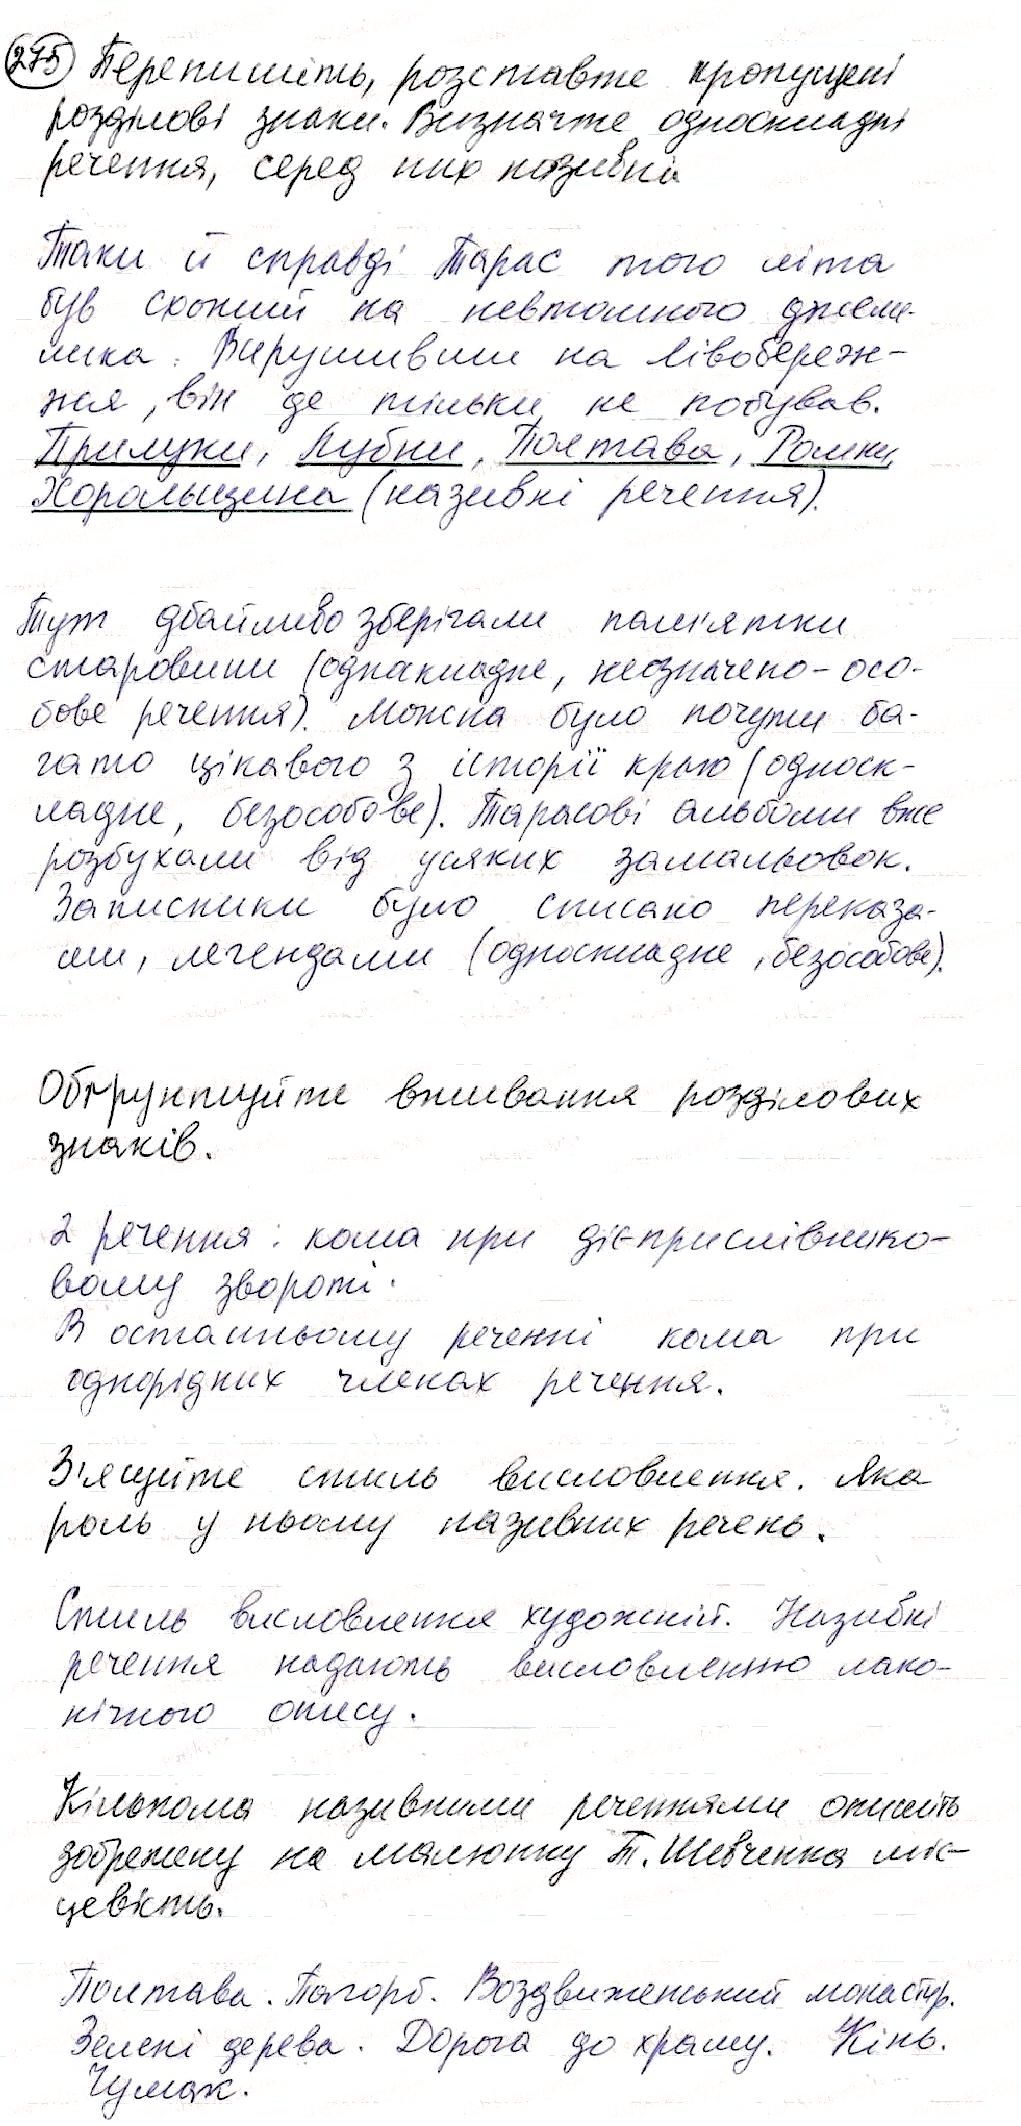 275 Перепишіть, розставте пропущені
розділові знаки. Визначте односкладні
речення, серед них називні
Таки й справді Тарас того літа
був схожий на невтомного джме-
лика. Вирушивши на Лівобереж-
жя, він де тільки не побував.
Прилуки, Лубни, Полтава, Ромни,
Хорольщина (називні речення).
Тут дбайливо зберігали пам'ятки
старовини (однакладне, неозначено-осо-
бове речення). Можна було почути ба-
гато цікавого з історії краю (односк-
ладне, безособове). Тарасові альбоми вже
розбухали від усяких замальовок.
Записники було списано переказа-
ми, легендами (односкладне, безособове).
Обґрунтуйте вживання розділових
знаків.
2 речення: кома при дієприслівнико-
вому звороті.
В останньому реченні кома при
однорідних членах речення.
З'ясуйте стиль висловлення. Яка
роль у ньому називних речень.
Стиль висловлення художній. Називні
речення надають висловленню лако-
нічного опису.
Кількома називними реченнями опишіть
зображену на малюнку Т. Шевченка міс-
цевість.
Полтава. Пагорб. Воздвиженський монастир.
Зелені дерева. Дорога до храму. Кінь.
Чумак.